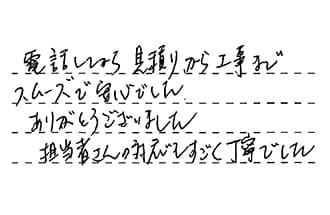 電話してから見積り、から工事まで
スムーズで安心でした
ありがとうございました
担当者さんの対応もすごく丁寧でした